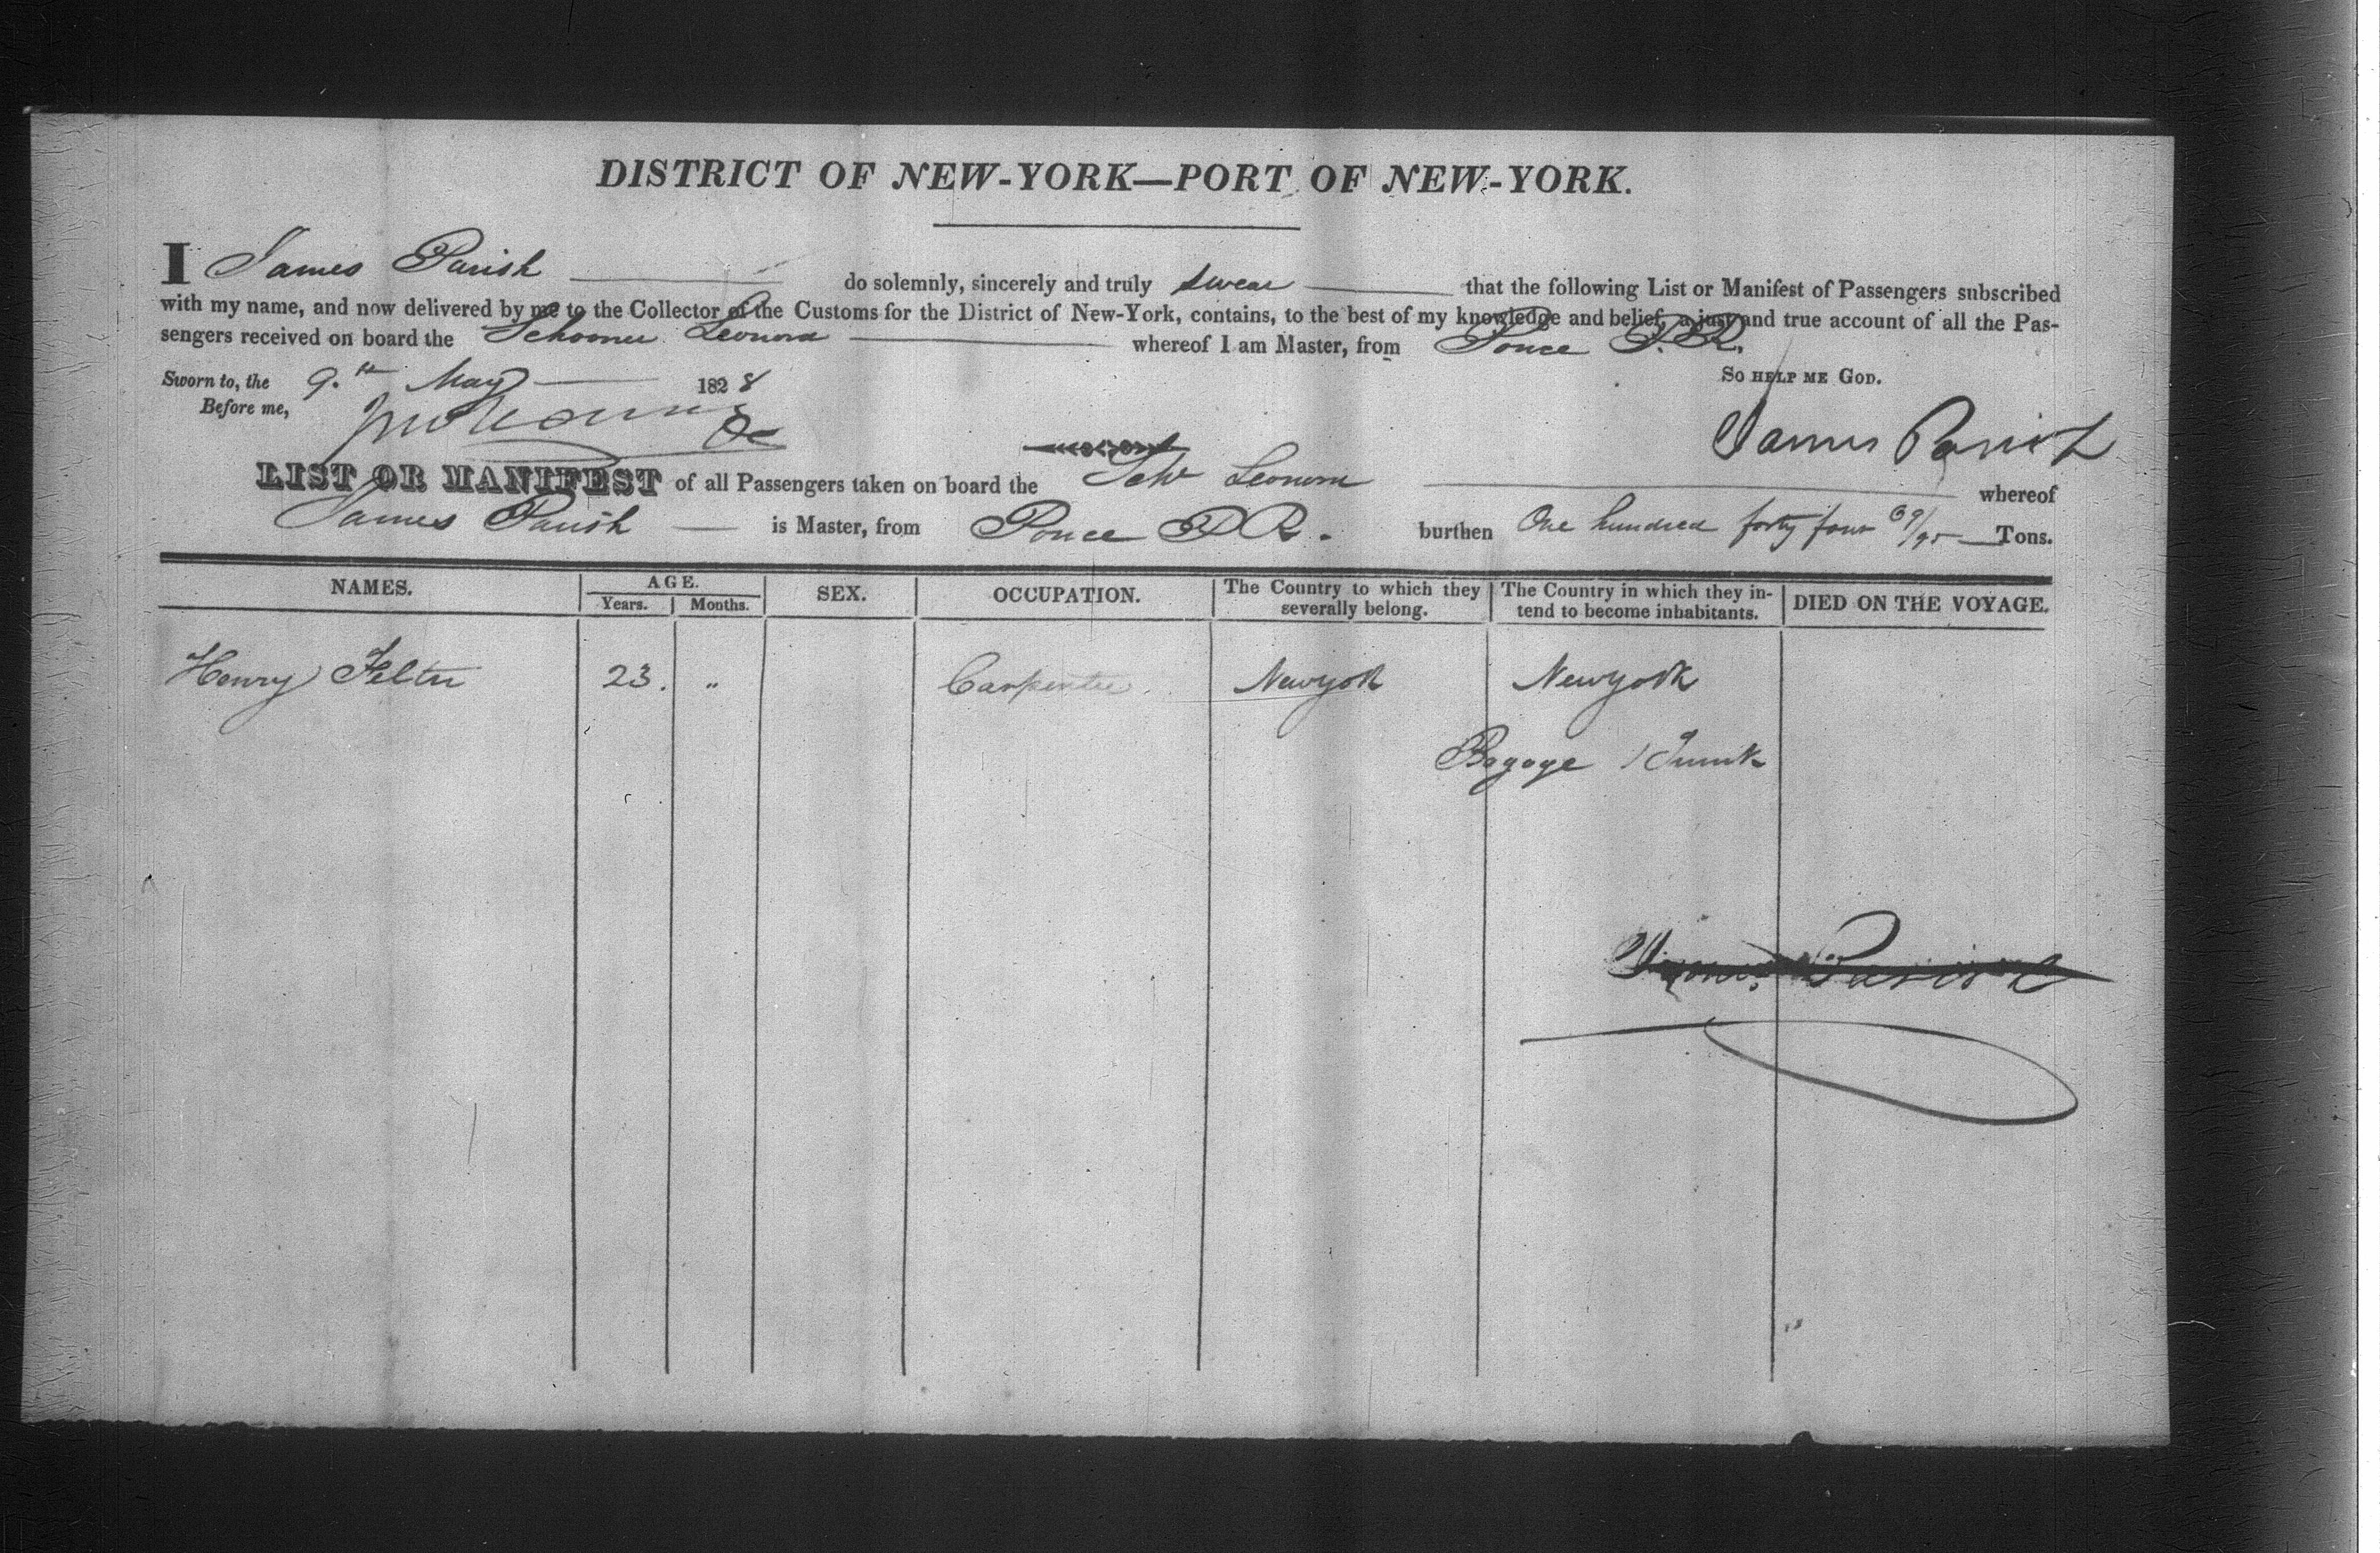 DISTRICT OF NEW-YORK—PORT OF NEW-YORK.
I James Parish do solemnly, sincerely and truly swear that the following List or Manifest of Passengers subscribed
with my name, and now delivered by me to the Collector of the Customs for the District of New-York, contains, to the best of my knowledge and belief, a just and true account of all the Pas-
sengers received on board the Schooner Leonora whereof I am Master, from Ponce P. R.
Sworn to, the 9.th May 1828 So HELP ME GOD.
Before me,
James Parish
LIST OR MANIFEST of all Passengers taken on board the Schr Leonora whereof
James Parish is Master, from Ponce P R. burthen One hundred forty four 69/95 Tons.
NAMES. AGE. Years. Months. SEX. OCCUPATION. The Country to which they severally belong. The Country in which they in-tend to become inhabitants. DIED ON THE VOYAGE.
Henry Felter 23. „ Carpenter. Newyork Newyork
Bagage 1 Trunk
James Parish